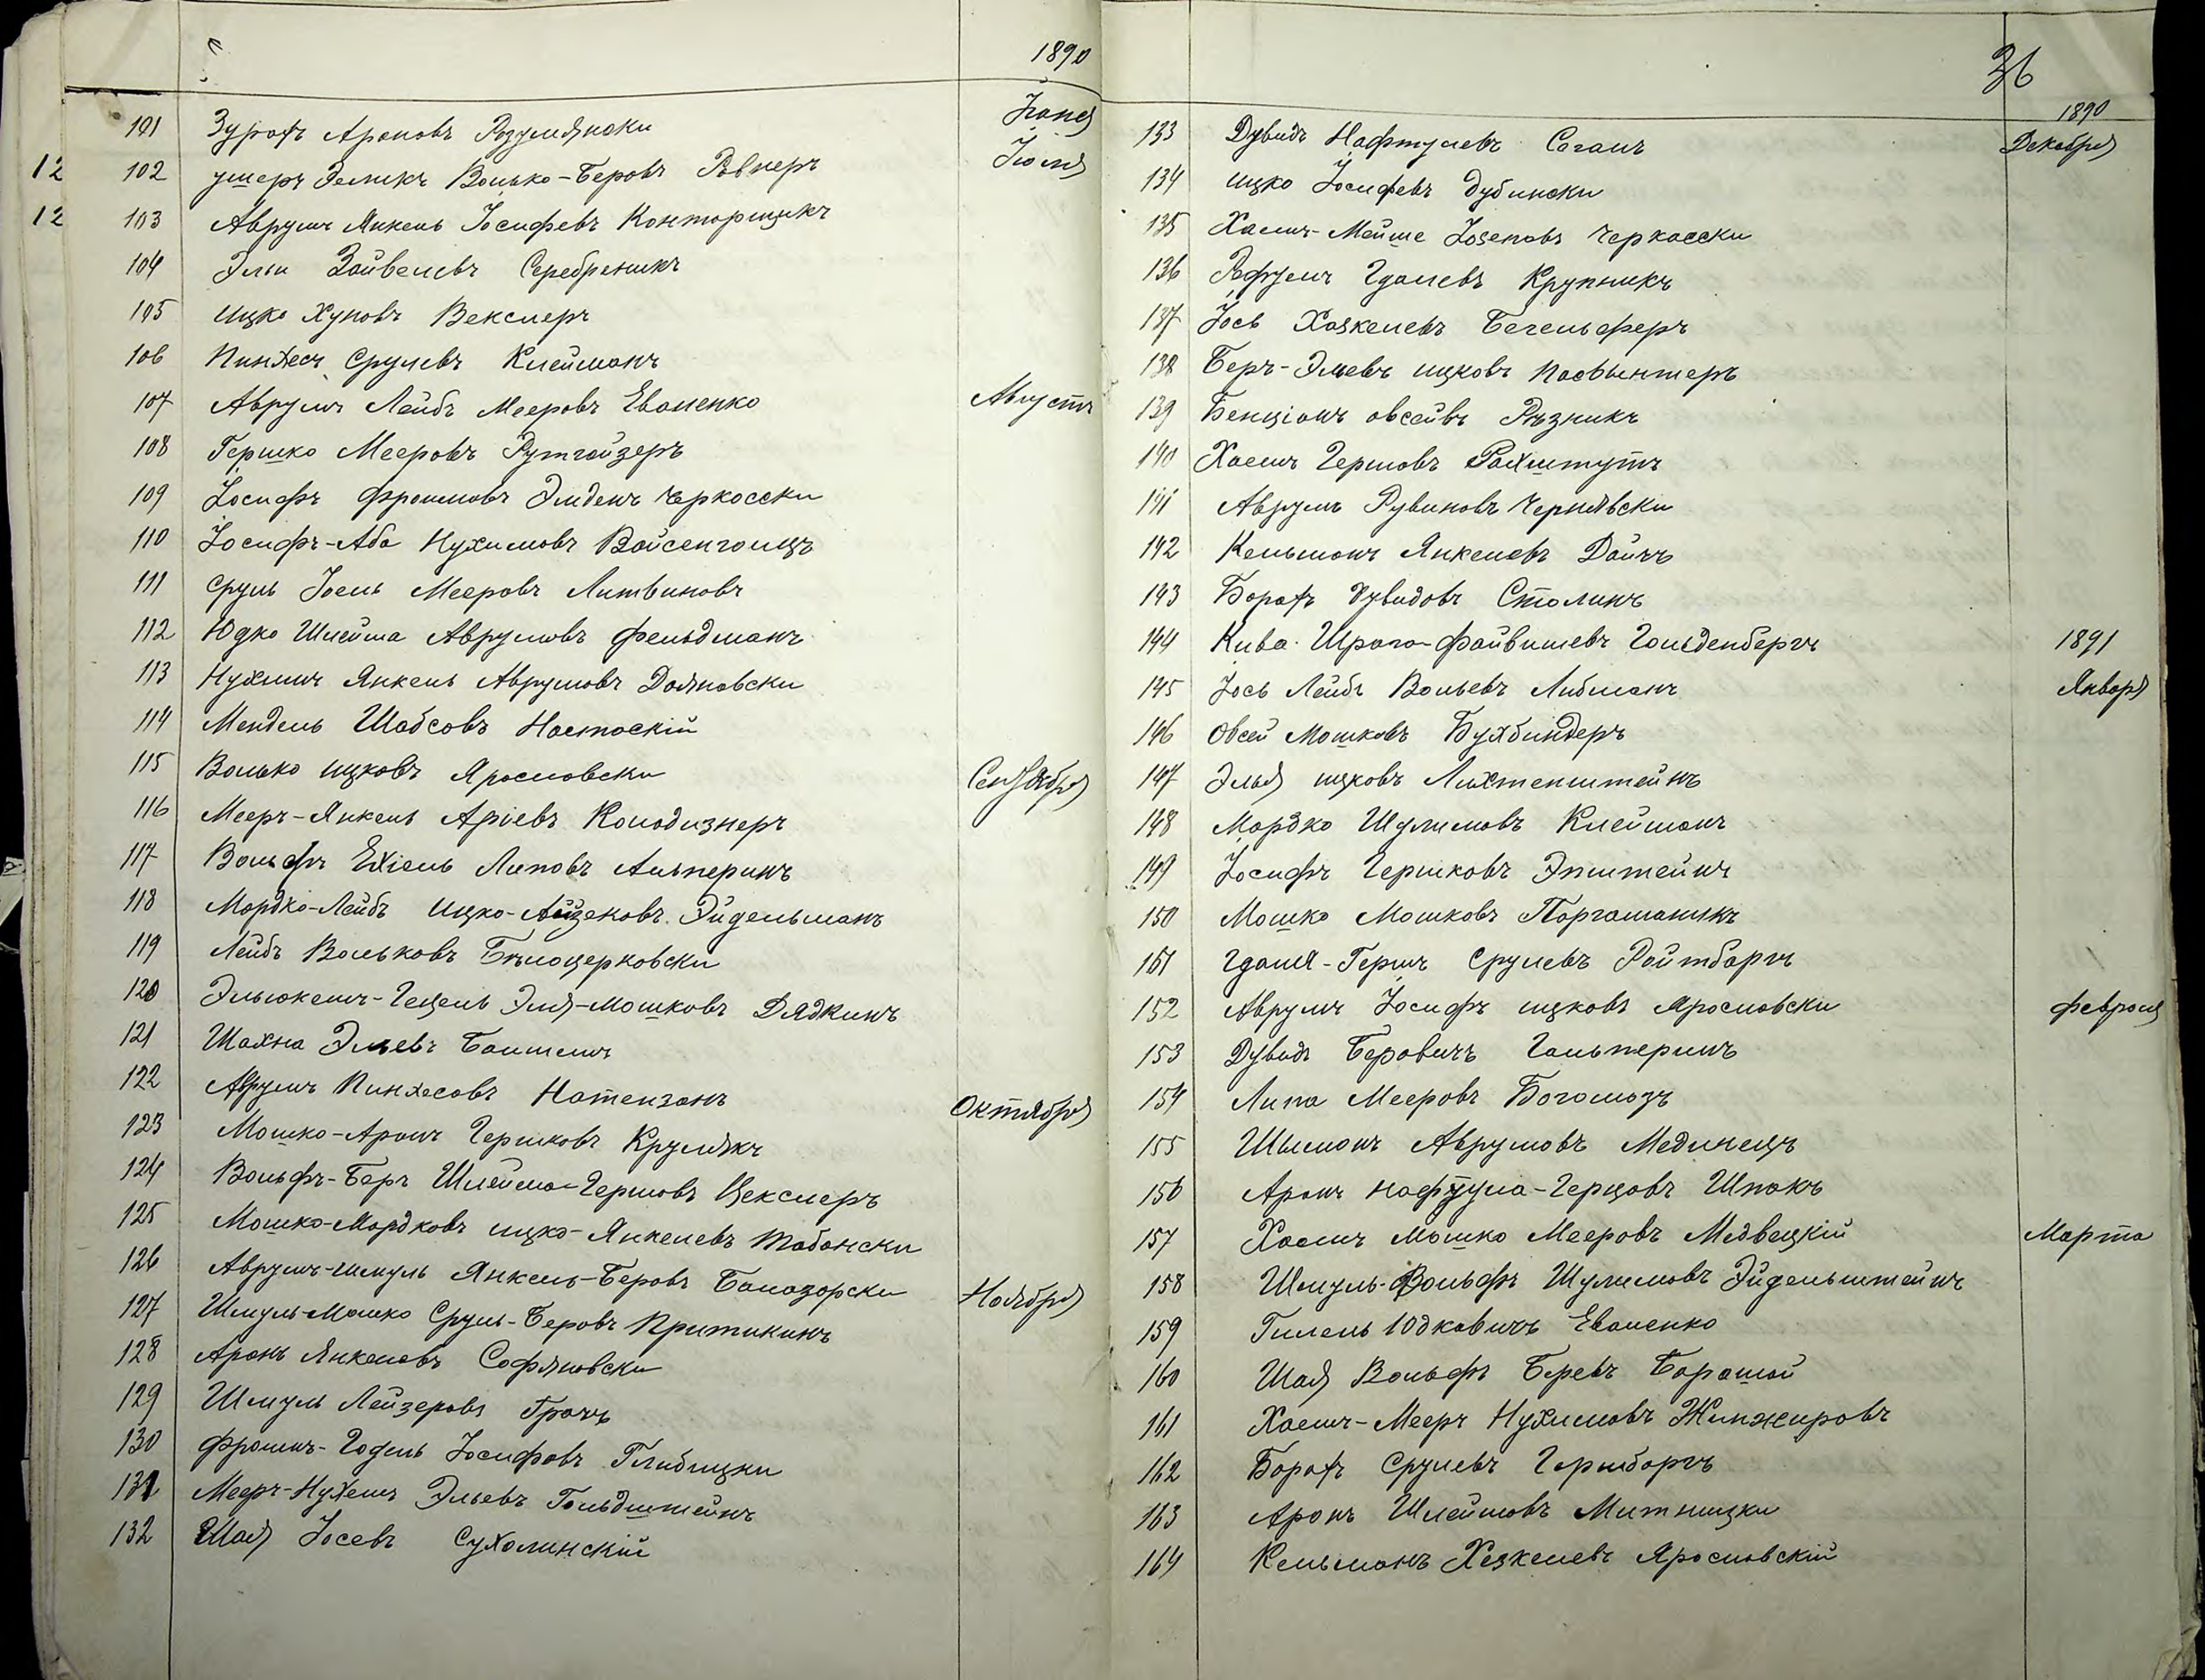 1890
101 Зурахъ Ароновъ Розумянски Іюня
12 102 Ушеръ Зеликъ Волько-Беровъ Ровнеръ Іюля
12 103 Аврумъ Янкель Іосифевъ Конторщикъ
104 Эльи Зайвелевъ Серебреникъ
105 ицко Хуновъ Векслеръ
106 Пинхесъ Срулевъ Клейманъ
107 Аврумъ Лейбъ Мееровъ Еваленко Августъ
108 Гершко Мееровъ Рутгайзеръ
109 Іосифъ Фроимовъ Эмденъ Черкасски
110 Іосифъ-Аба Нухимовъ Вайсенгольцъ
111 Сруль Іоель Мееровъ Литвиновъ
112 Юдко Шлейма Аврумовъ Фельдманъ
113 Нухимъ Янкель Аврумовъ Даяновски
114 Мендель Шабсовъ Настаскій
115 Волько ицковъ Ярославски Сентября
116 Мееръ-Янкель Аріевъ Колодизнеръ
117 Вольфъ Ехіель Липовъ Альперинъ
118 Мордко-Лейбъ Ицко-Айзековъ Эйдельманъ
119 Лейбъ Вольковъ Бѣлоцерковски
120 Эльюкемъ-Гецель Эля-Мошковъ Дядкинъ
121 Шахна Эльевъ
122 Аврумъ Пинхесовъ Натензонъ Октября
123 Мошко-Аронъ Гершковъ Круплякъ
124 Вольфъ-Беръ Шлейма-Гершовъ Цекслеръ
125 Мошко-Мордковъ ицко-Янкелевъ Табански
126 Аврумъ-шмуль Янкель-Беровъ Балазорски Ноября
127 Шмуль-Мошко Сруль-Беровъ Притикинъ
128 Аронъ Янкелевъ Софяновски
129 Шмуль Лейзеровъ Грачъ
130 Фроимъ-Годель Іосифовъ Глибицки
131 Мееръ-Нухемъ Эльевъ Гольдштейнъ
132 Шая Іосевъ Сухолинскій
36
1890
133 Дувидъ Нафтулевъ Саганъ Декабря
134 ицко Іосифевъ Дубински
135 Хаимъ-Мейше Іозеповъ Черкасски
136 Рафуилъ Гдалевъ Крупникъ
137 Іось Хаскелевъ Бегельферъ
138 Беръ-Эльевъ ицковъ Пасвынтеръ
139 Бенціонъ овсейвъ Рѣзникъ
140 Хаимъ Гершовъ Рахштутъ
141 Аврумъ Рувиновъ Чернявски
142 Кельманъ Янкелевъ Дайчъ
143 Борахъ Дувидовъ Столинъ
144 Кива Шрага-Файвишевъ Гольденбергъ 1891
145 Іось Лейбъ Вольевъ Либманъ Января
146 Овсей Мошковъ Бухбиндеръ
147 Элья ицковъ Лихтенштейнъ
148 Мордко Шулимовъ Клейманъ
149 Іосифъ Гершковъ Эпштейнъ
150 Мошко Мошковъ Портоманикъ
151 Гдаля-Гершъ Срулевъ Ройтбаргъ
152 Аврумъ Іосифъ ицковъ Ярославски Февраля
153 Дувидъ Беровичъ Гальперинъ
154 Липа Мееровъ Богомазъ
155 Шимонъ Аврумовъ Мединецъ
156 Аронъ Нафтула-Герцовъ Шпакъ
157 Хаимъ Мошко Мееровъ Медвецкій Марта
158 Шмуль-Вольфъ Шулимовъ Эйдельштейнъ
159 Гилель Юдковичъ Еваленко
160 Шая Вольфъ Беревъ Барашой
161 Хаимъ-Мееръ Нухимовъ Жинжировъ
162 Борахъ Срулевъ Гершборгъ
163 Аронъ Шлеймовъ Митницки
164 Кельманъ Хезкелевъ Ярославскій